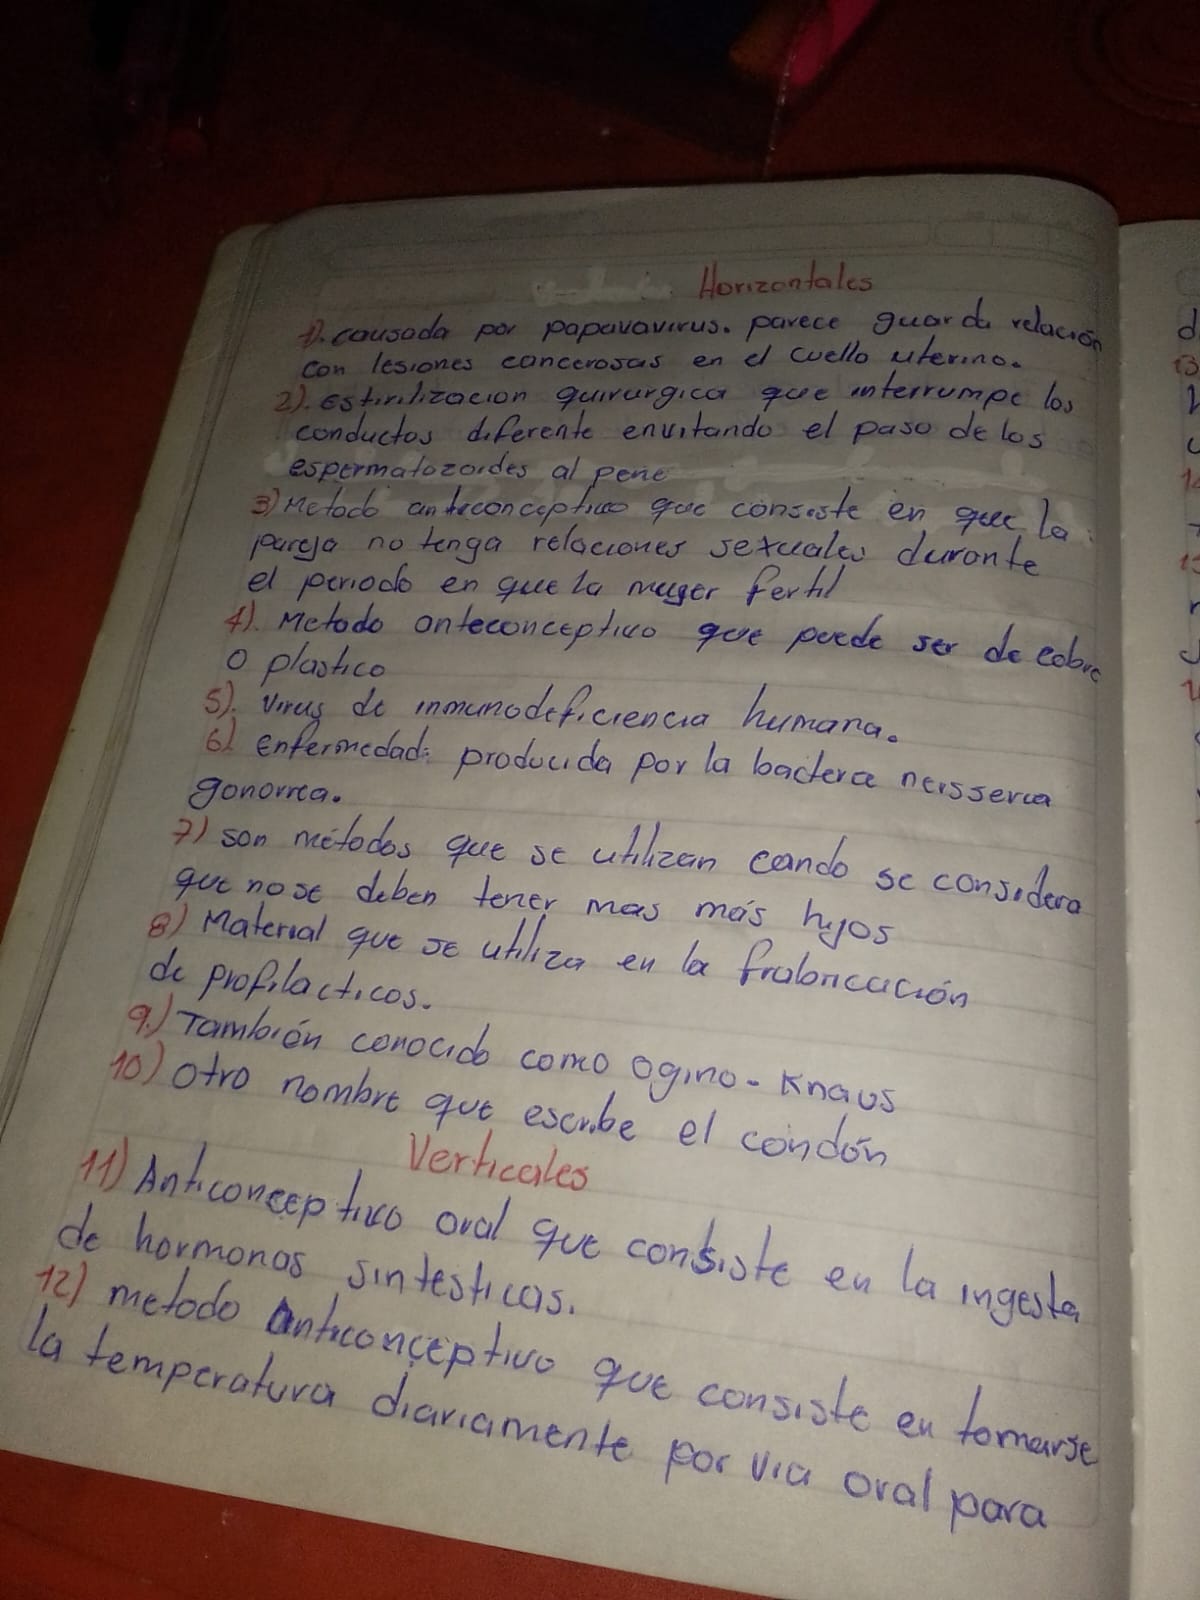 Horizontales
1). causada por papavavirus. parece guarda relación
con lesiones cancerosas en el cuello uterino.
2). estirilizacion quirurgica que interrumpe los
conductos diferente envitando el paso de los
espermatozoides al pene
3) Metodo anteconceptivo que consiste en que la
pareja no tenga relaciones sexuales durante
el periodo en que la muger fertil
4). Metodo anteconceptivo que puede ser de cobre
o plastico
5). virus de inmunodeficiencia humana.
6) enfermedad: producida por la bacterea neisseria
gonorrea.
7) son métodos que se utilizan cando se considera
que no se deben tener mas más hijos
8) Material que se utiliza en la frabricación
de profilacticos.
9.) También conocido como Ogino - Knaus
10) otro nombre que escribe el condón
Verticales
11) Anticonceptivo oral que consiste en la ingesta
de hormonas sintesticas.
12) metodo anticonceptivo que consiste en tomarse
la temperatura diariamente por via oral para
d
13
14
15